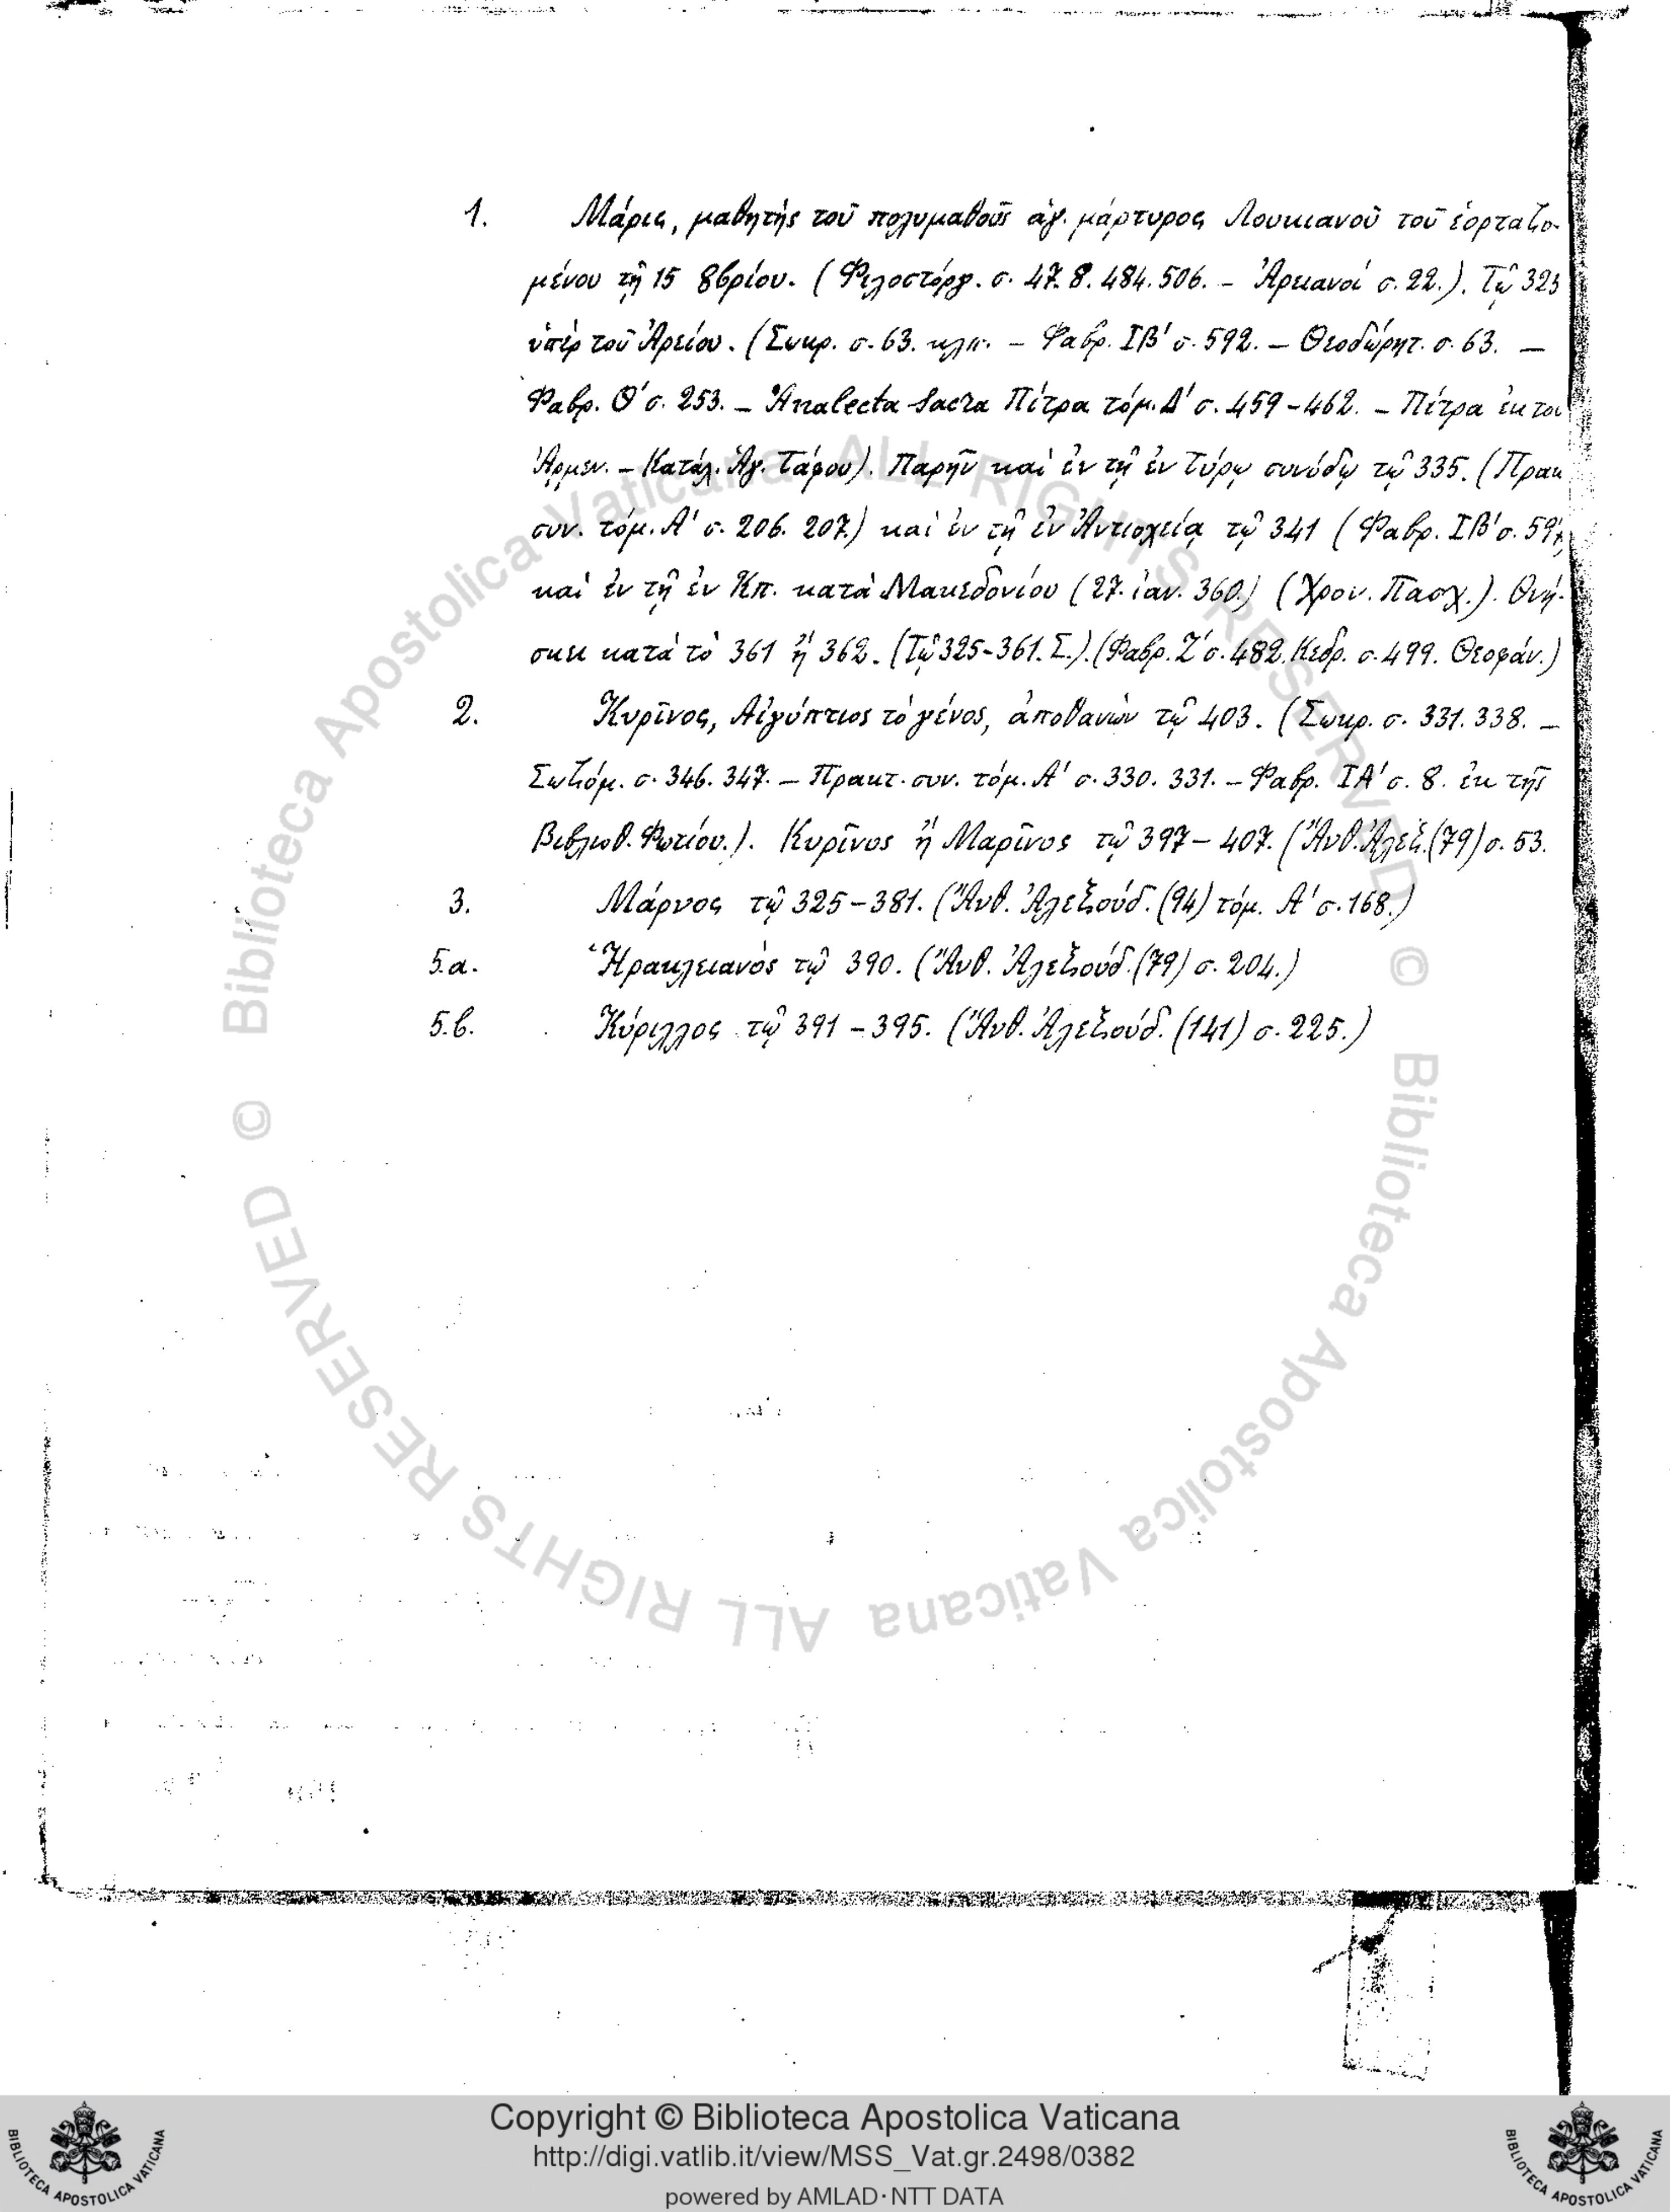 1. Μάρις, μαθητὴς τοῦ πολυμαθοῦς ἁγ. μάρτυρος Λουκιανοῦ τοῦ ἑορταζο-
μένου τῇ 15 8βρίου. (Φιλοστόργ. σ. 47. 8. 484. 506. – Ἀρειανοί σ. 22.). Τῷ 325
ὑπὲρ τοῦ Ἀρείου. (Σωκρ. σ. 63. κλπ. – Φαβρ. ΙΒ' σ. 592. – Θεοδώρητ. σ. 63. –
Φαβρ. Θ' σ. 253. – Analecta Sacra Πίτρα τόμ. Δ' σ. 459-462. – Πίτρα ἐκ του
Ἀρμεν. – Κατάλ. Ἁγ. Τάφου). Παρῆν καὶ ἐν τῇ ἐν Τύρῳ συνόδῳ τῷ 335. (Πρακ
συν. τόμ. Α' σ. 206. 207.) καὶ ἐν τῇ ἐν Ἀντιοχείᾳ τῷ 341 (Φαβρ. ΙΒ' σ.
καὶ ἐν τῇ ἐν Κπ. κατὰ Μακεδονίου (27. ἰαν. 360.) (Χρον. Πασχ.). Θνή-
σκει κατὰ τὸ 361 ἢ 362. (Τῷ 325-361. Σ.). (Φαβρ. Ζ' σ. 482. Κεδρ. σ. 499. Θεοφάν.)
2. Κυρῖνος, Αἰγύπτιος τὸ γένος, ἀποθανὼν τῷ 403. (Σωκρ. σ. 331. 338. –
Σωζόμ. σ. 346. 347. – Πρακτ. συν. τόμ. Α' σ. 330. 331. – Φαβρ. ΙΑ' σ. 8. ἐκ τῆς
Βιβλιοθ. Φωτίου.). Κυρῖνος ἢ Μαρῖνος τῷ 397-407. (Ἄνθ. Ἀλεξ. (79) σ. 53.
3. Μάρνος τῷ 325-381. (Ἄνθ. Ἀλεξούδ. (94) τόμ. Α' σ. 168.)
5.α. Ἡρακλειανὸς τῷ 390. (Ἄνθ. Ἀλεξούδ. (79) σ. 204.)
5.β. Κύριλλος τῷ 391-395. (Ἄνθ. Ἀλεξούδ. (141) σ. 225.)
© Biblioteca Apostolica Vaticana ALL RIGHTS RESERVED
© Biblioteca Apostolica Vaticana ALL RIGHTS RESERVED
Copyright © Biblioteca Apostolica Vaticana
http://digi.vatlib.it/view/MSS_Vat.gr.2498/0382
powered by AMLAD·NTT DATA
BIBLIOTECA APOSTOLICA VATICANA
BIBLIOTECA APOSTOLICA VATICANA